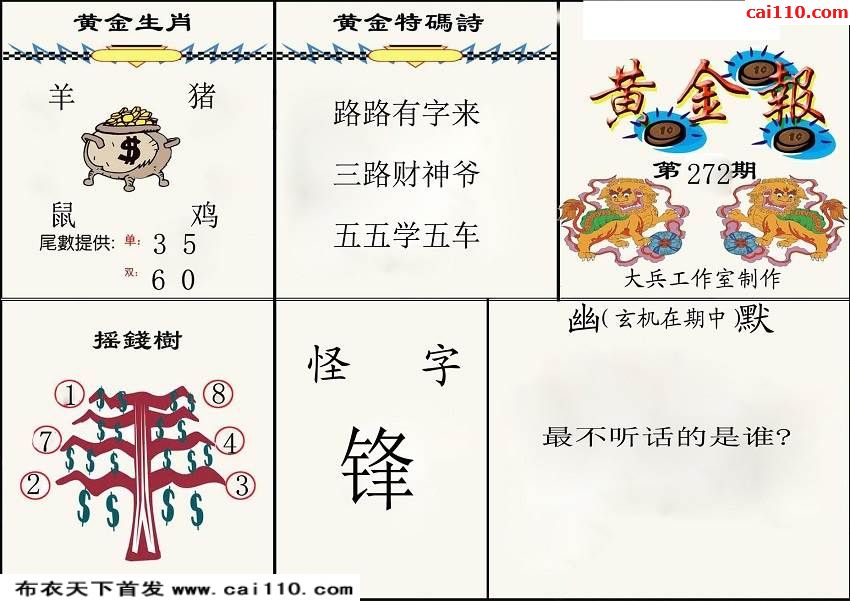 cai110.com
黄金生肖
羊 猪
$
鼠 鸡
尾數提供: 单: 3 5
双: 6 0
黄金特碼詩
路路有字来
三路财神爷
五五学五车
黄金報
第272期
大兵工作室制作
摇錢樹
1 8
7 4
2 3
怪 字
锋
幽(玄机在期中)默
最不听话的是谁?
布衣天下首发 www.cai110.com